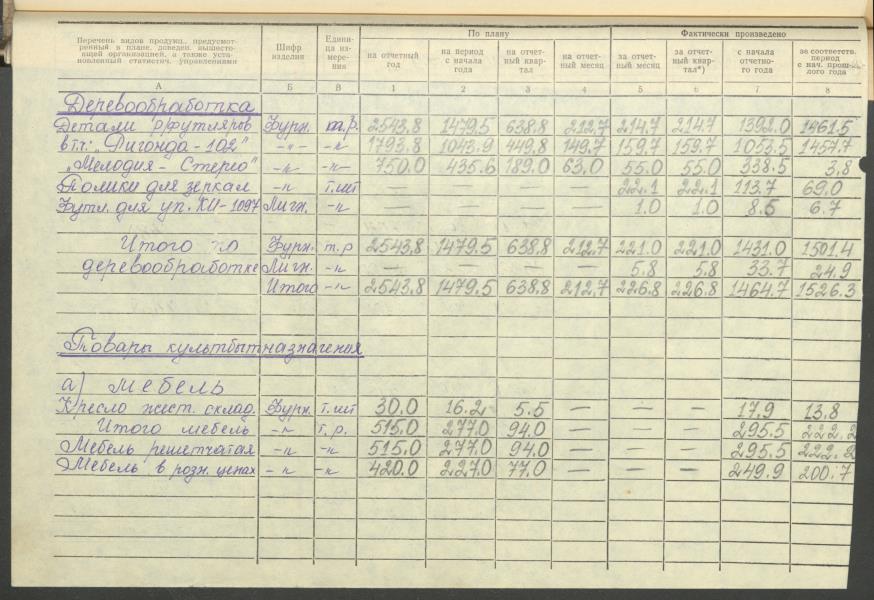 Перечень видов продукц., предусмот-
ренный в плане, доведен. вышесто-
ящей организацией, а также уста-
новленный статистич. управлениями
Шифр
изделия
Едини-
ца из-
мере-
ния
По плану
Фактически произведено
на отчетный
год
на период
с начала
года
на отчет-
ный квар-
тал
на отчет-
ный месяц
за отчет-
ный месяц
за отчет-
ный квар-
тал*)
с начала
отчетно-
го года
за соответств.
период
с нач. прош-
лого года
А Б В 1 2 3 4 5 6 7 8
Деревообработка
Детали р/футляров Бурн. т.р. 2543.8 1479.5 638.8 212.7 214.7 214.7 1392.0 1461.5
в т.ч: „Ригонда-102" -"- -"- 1793.8 1043.9 449.8 149.7 159.7 159.7 1053.5 1457.7
„Мелодия-Стерео" -"- -"- 750.0 435.6 189.0 63.0 55.0 55.0 338.5 3.8
Полики для зеркал -"- т.шт — — — — 22.1 22.1 113.7 69.0
Футл. для уп. КИ-1097 Лигн. -"- — — — — 1.0 1.0 8.5 6.7
Итого по Бурн. т.р 2543.8 1479.5 638.8 212.7 221.0 221.0 1431.0 1501.4
деревообработке Лигн. -"- — — — — 5.8 5.8 33.7 24.9
Итого -"- 2543.8 1479.5 638.8 212.7 226.8 226.8 1464.7 1526.3
Товары культбытназначения
а) Мебель
Кресло жест. склад. Бурн. т.шт 30.0 16.2 5.5 — — — 17.9 13.8
Итого мебель -"- т.р. 515.0 277.0 94.0 — — — 295.5 222.2
Мебель решетчатая -"- -"- 515.0 277.0 94.0 — — — 295.5 222.2
Мебель в розн. ценах -"- -"- 420.0 227.0 77.0 — — — 249.9 200.7